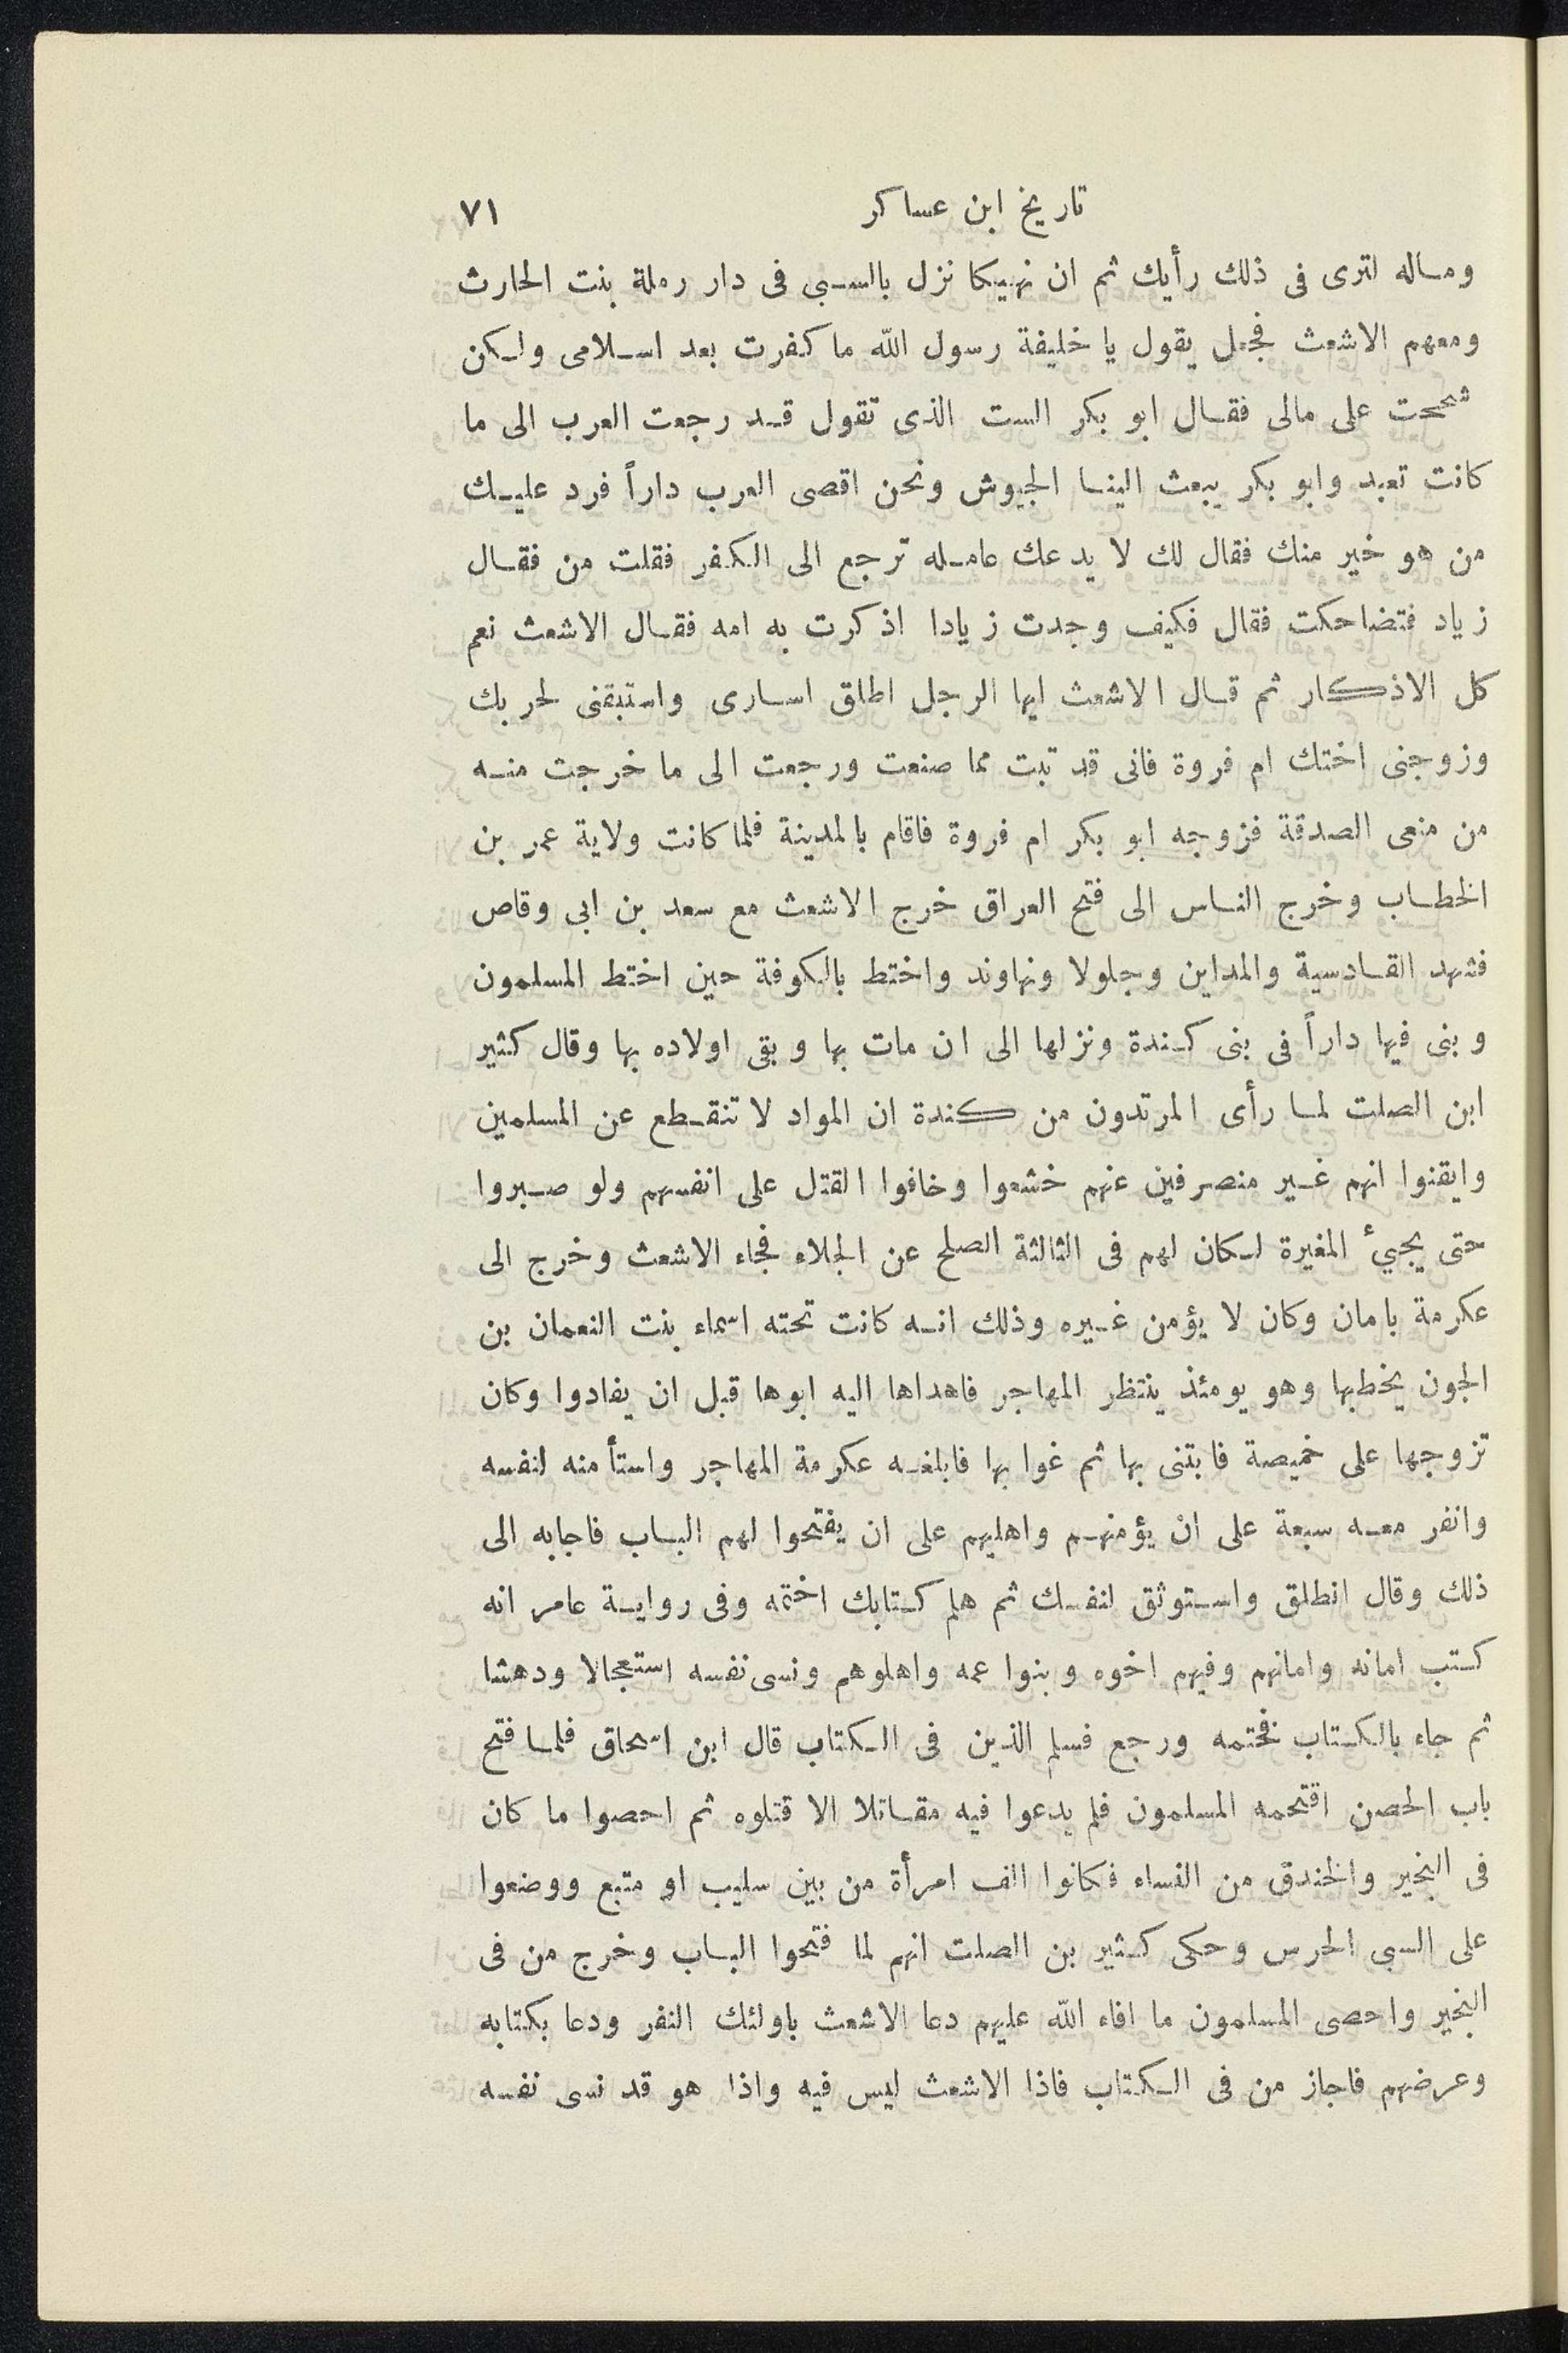 تاريخ ابن عساكر ٧١
وماله لترى فى ذلك رأيك ثم ان نهيكا نزل بالسبى فى دار رملة بنت الحارث
ومعهم الاشعث فجعل يقول يا خليفة رسول الله ما كفرت بعد اسلامى ولكن
شححت على مالى فقال ابو بكر الست الذى تقول قد رجعت العرب الى ما
كانت تعبد وابو بكر يبعث الينا الجيوش ونحن اقصى العرب داراً فرد عليك
من هو خير منك فقال لك لا يدعك عامله ترجع الى الكفر فقلت من فقال
زياد فتضاحكت فقال فكيف وجدت زيادا اذكرت به امه فقال الاشعث نعم
كل الاذكار ثم قال الاشعث ايها الرجل اطلق اسارى واستبقنى لحربك
وزوجنى اختك ام فروة فانى قد تبت مما صنعت ورجعت الى ما خرجت منه
من منعى الصدقة فزوجه ابو بكر ام فروة فاقام بالمدينة فلما كانت ولاية عمر بن
الخطاب وخرج الناس الى فتح العراق خرج الاشعث مع سعد بن ابى وقاص
فشهد القادسية والمداين وجلولا ونهاوند واختط بالكوفة حين اختط المسلمون
وبنى فيها داراً فى بنى كندة ونزلها الى ان مات بها وبقى اولاده بها وقال كثير
ابن الصلت لما رأى المرتدون من كندة ان المواد لا تنقطع عن المسلمين
وايقنوا انهم غير منصرفين عنهم خشعوا وخافوا القتل على انفسهم ولو صبروا
حتى يجيئ المغيرة لكان لهم فى الثالثة الصلح عن الجلاء فجاء الاشعث وخرج الى
عكرمة بامان وكان لا يؤمن غيره وذلك انه كانت تحته اسماء بنت النعمان بن
الجون يخطبها وهو يومئذ ينتظر المهاجر فاهداها اليه ابوها قبل ان يفادوا وكان
تزوجها على خميصة فابتنى بها ثم غوا بها فابلغه عكرمة المهاجر واستأمنه لنفسه
وانفر معه سبعة على ان يؤمنهم واهليهم على ان يفتحوا لهم الباب فاجابه الى
ذلك وقال انطلق واستوثق لنفسك ثم هلم كتابك اختمه وفى رواية عامر انه
كتب امانه وامانهم وفيهم اخوه وبنوا عمه واهلوهم ونسى نفسه استعجالا ودهشا
ثم جاء بالكتاب فختمه ورجع فسلم الذين فى الكتاب قال ابن اسحاق فلما فتح
باب الحصن اقتحمه المسلمون فلم يدعوا فيه مقاتلا الا قتلوه ثم احصوا ما كان
فى النجير والخندق من النساء فكانوا الف امرأة من بين سليب او متبع ووضعوا
على السبى الحرس وحكى كثير بن الصلت انهم لما فتحوا الباب وخرج من فى
النجير واحصى المسلمون ما افاء الله عليهم دعا الاشعث باولئك النفر ودعا بكتابه
وعرضهم فاجاز من فى الكتاب فاذا الاشعث ليس فيه واذا هو قد نسى نفسه